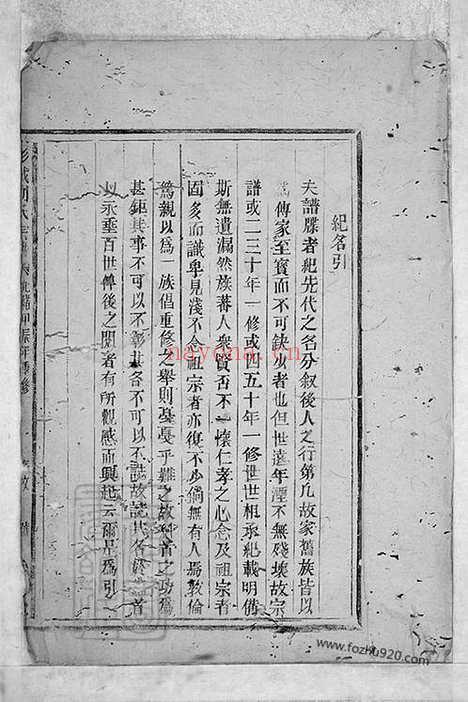 紀名引
夫譜牒者紀先代之名分叙後人之行第凡故家舊族皆以
為傳家至寶而不可缺少者也但世遠年湮不無殘壞故宗
譜或二三十年一修或四五十年一修世世相承紀載明備
斯無遺漏然族蕃人衆賢否不一懷仁孝之心念及祖宗者
固多而識卑見淺不念祖宗者亦復不少倘無有人焉敦倫
篤親以為一族倡重修之舉則戞戞乎難之故 首之功為
甚鉅其事不可以不彰其名不可以不誌故 其名於 首
以永垂百世俾後之閱者有所觀感而興起云爾是為引
nayona.cn
www.fozhu920.com